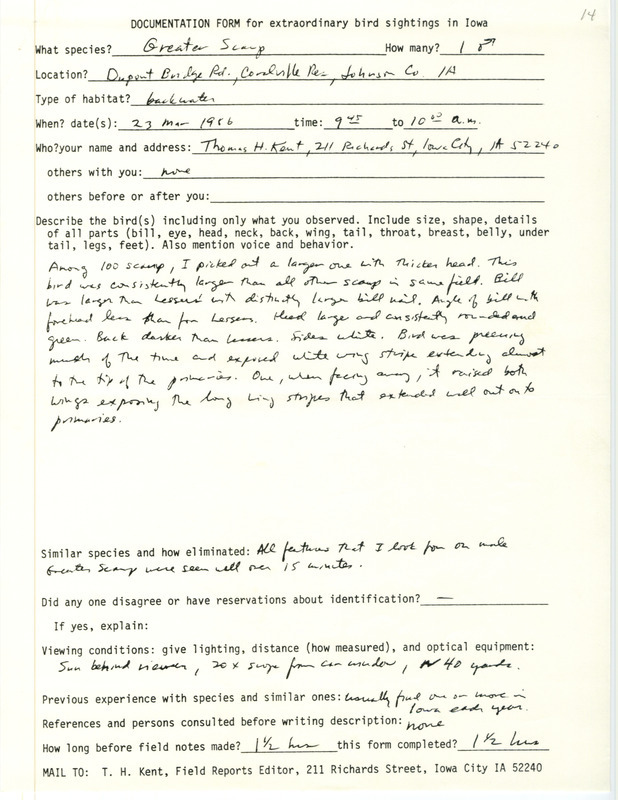 14
DOCUMENTATION FORM for extraordinary bird sightings in Iowa
What species? Greater Scaup How many? 1 ♂
Location? Dupont Bridge Rd., Coralville Res, Johnson Co. IA
Type of habitat? backwater
When? date(s): 23 Mar 1986 time: 9 45 to 10 00 a.m.
Who?your name and address: Thomas H. Kent, 211 Richards St, Iowa City, IA 52240
others with you: none
others before or after you:
Describe the bird(s) including only what you observed. Include size, shape, details
of all parts (bill, eye, head, neck, back, wing, tail, throat, breast, belly, under
tail, legs, feet). Also mention voice and behavior.
Among 100 scaup, I picked out a larger one with thicker head. This
bird was consistently larger than all other scaup in same field. Bill
was larger than Lessers with distinctly larger bill nail. Angle of bill with
forehead less than for Lessers. Head large and consistently rounded and
green. Back darker than Lessers. Sides white. Bird was preening
much of the time and exposed white wing stripe extending almost
to the tip of the primaries. One, when facing away, it raised both
wings exposing the long wing stripes that extended well out onto
primaries.
Similar species and how eliminated: All features that I look for on male
Greater Scaup were seen well over 15 minutes.
Did any one disagree or have reservations about identification? —
If yes, explain:
Viewing conditions: give lighting, distance (how measured), and optical equipment:
Sun behind viewer, 20x scope from car window, ~ 40 yards.
Previous experience with species and similar ones: usually find one or more in
Iowa each year.
References and persons consulted before writing description: none
How long before field notes made? 1 1/2 hrs this form completed? 1 1/2 hrs
MAIL TO: T. H. Kent, Field Reports Editor, 211 Richards Street, Iowa City IA 52240